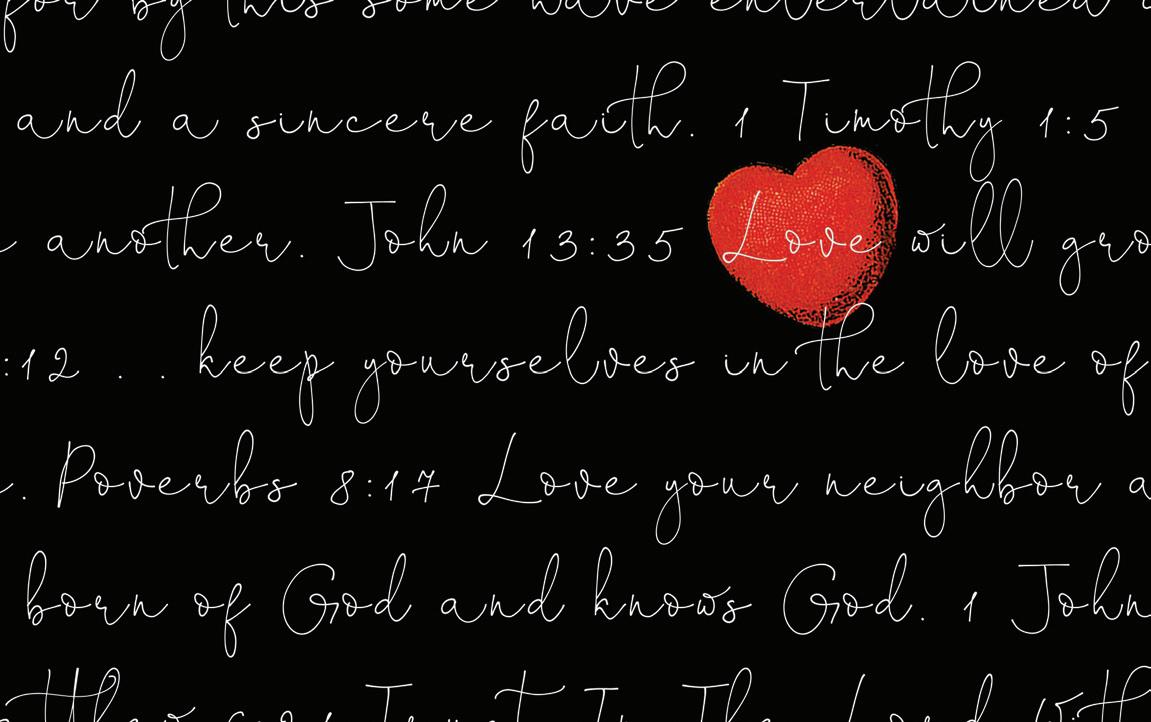 for by this some have entertained
and a sincere faith. 1 Timothy 1:5
another. John 13:35 Love will gro
:12 . . keep yourselves in the love of
. Poverbs 8:17 Love your neighbor a
born of God and knows God. 1 John
Trust In The Lord with